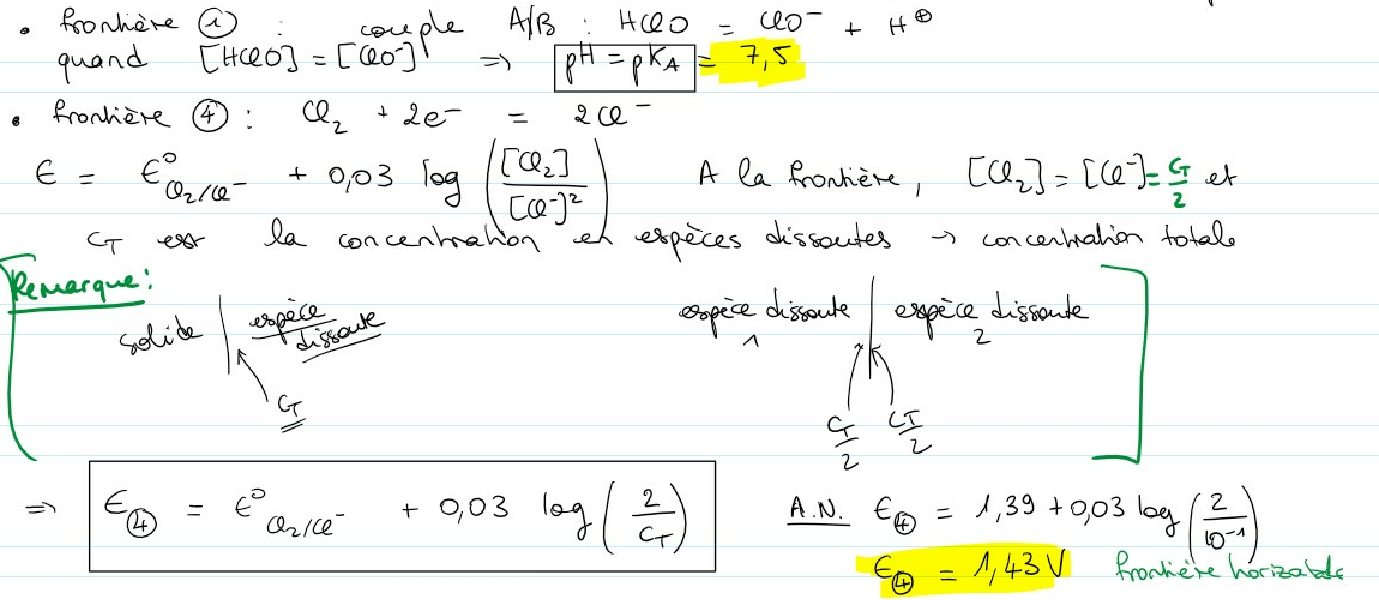 • frontière ① : couple A/B : HClO = ClO⁻ + H⊕
quand [HClO] = [ClO⁻] => pH = pKA = 7,5
• frontière ④ : Cl₂ + 2e⁻ = 2Cl⁻
E = E°Cl₂/Cl⁻ + 0,03 log ([Cl₂]/[Cl⁻]²) A la frontière, [Cl₂] = [Cl⁻] = CT/2 et
CT est la concentration en espèces dissoutes → concentration totale
Remarque :
solide | espèce dissoute
CT
espèce dissoute 1 | espèce dissoute 2
CT/2 CT/2
=> E④ = E°Cl₂/Cl⁻ + 0,03 log (2/CT) A.N. E④ = 1,39 + 0,03 log (2/10⁻¹)
E④ = 1,43 V frontière horizontale